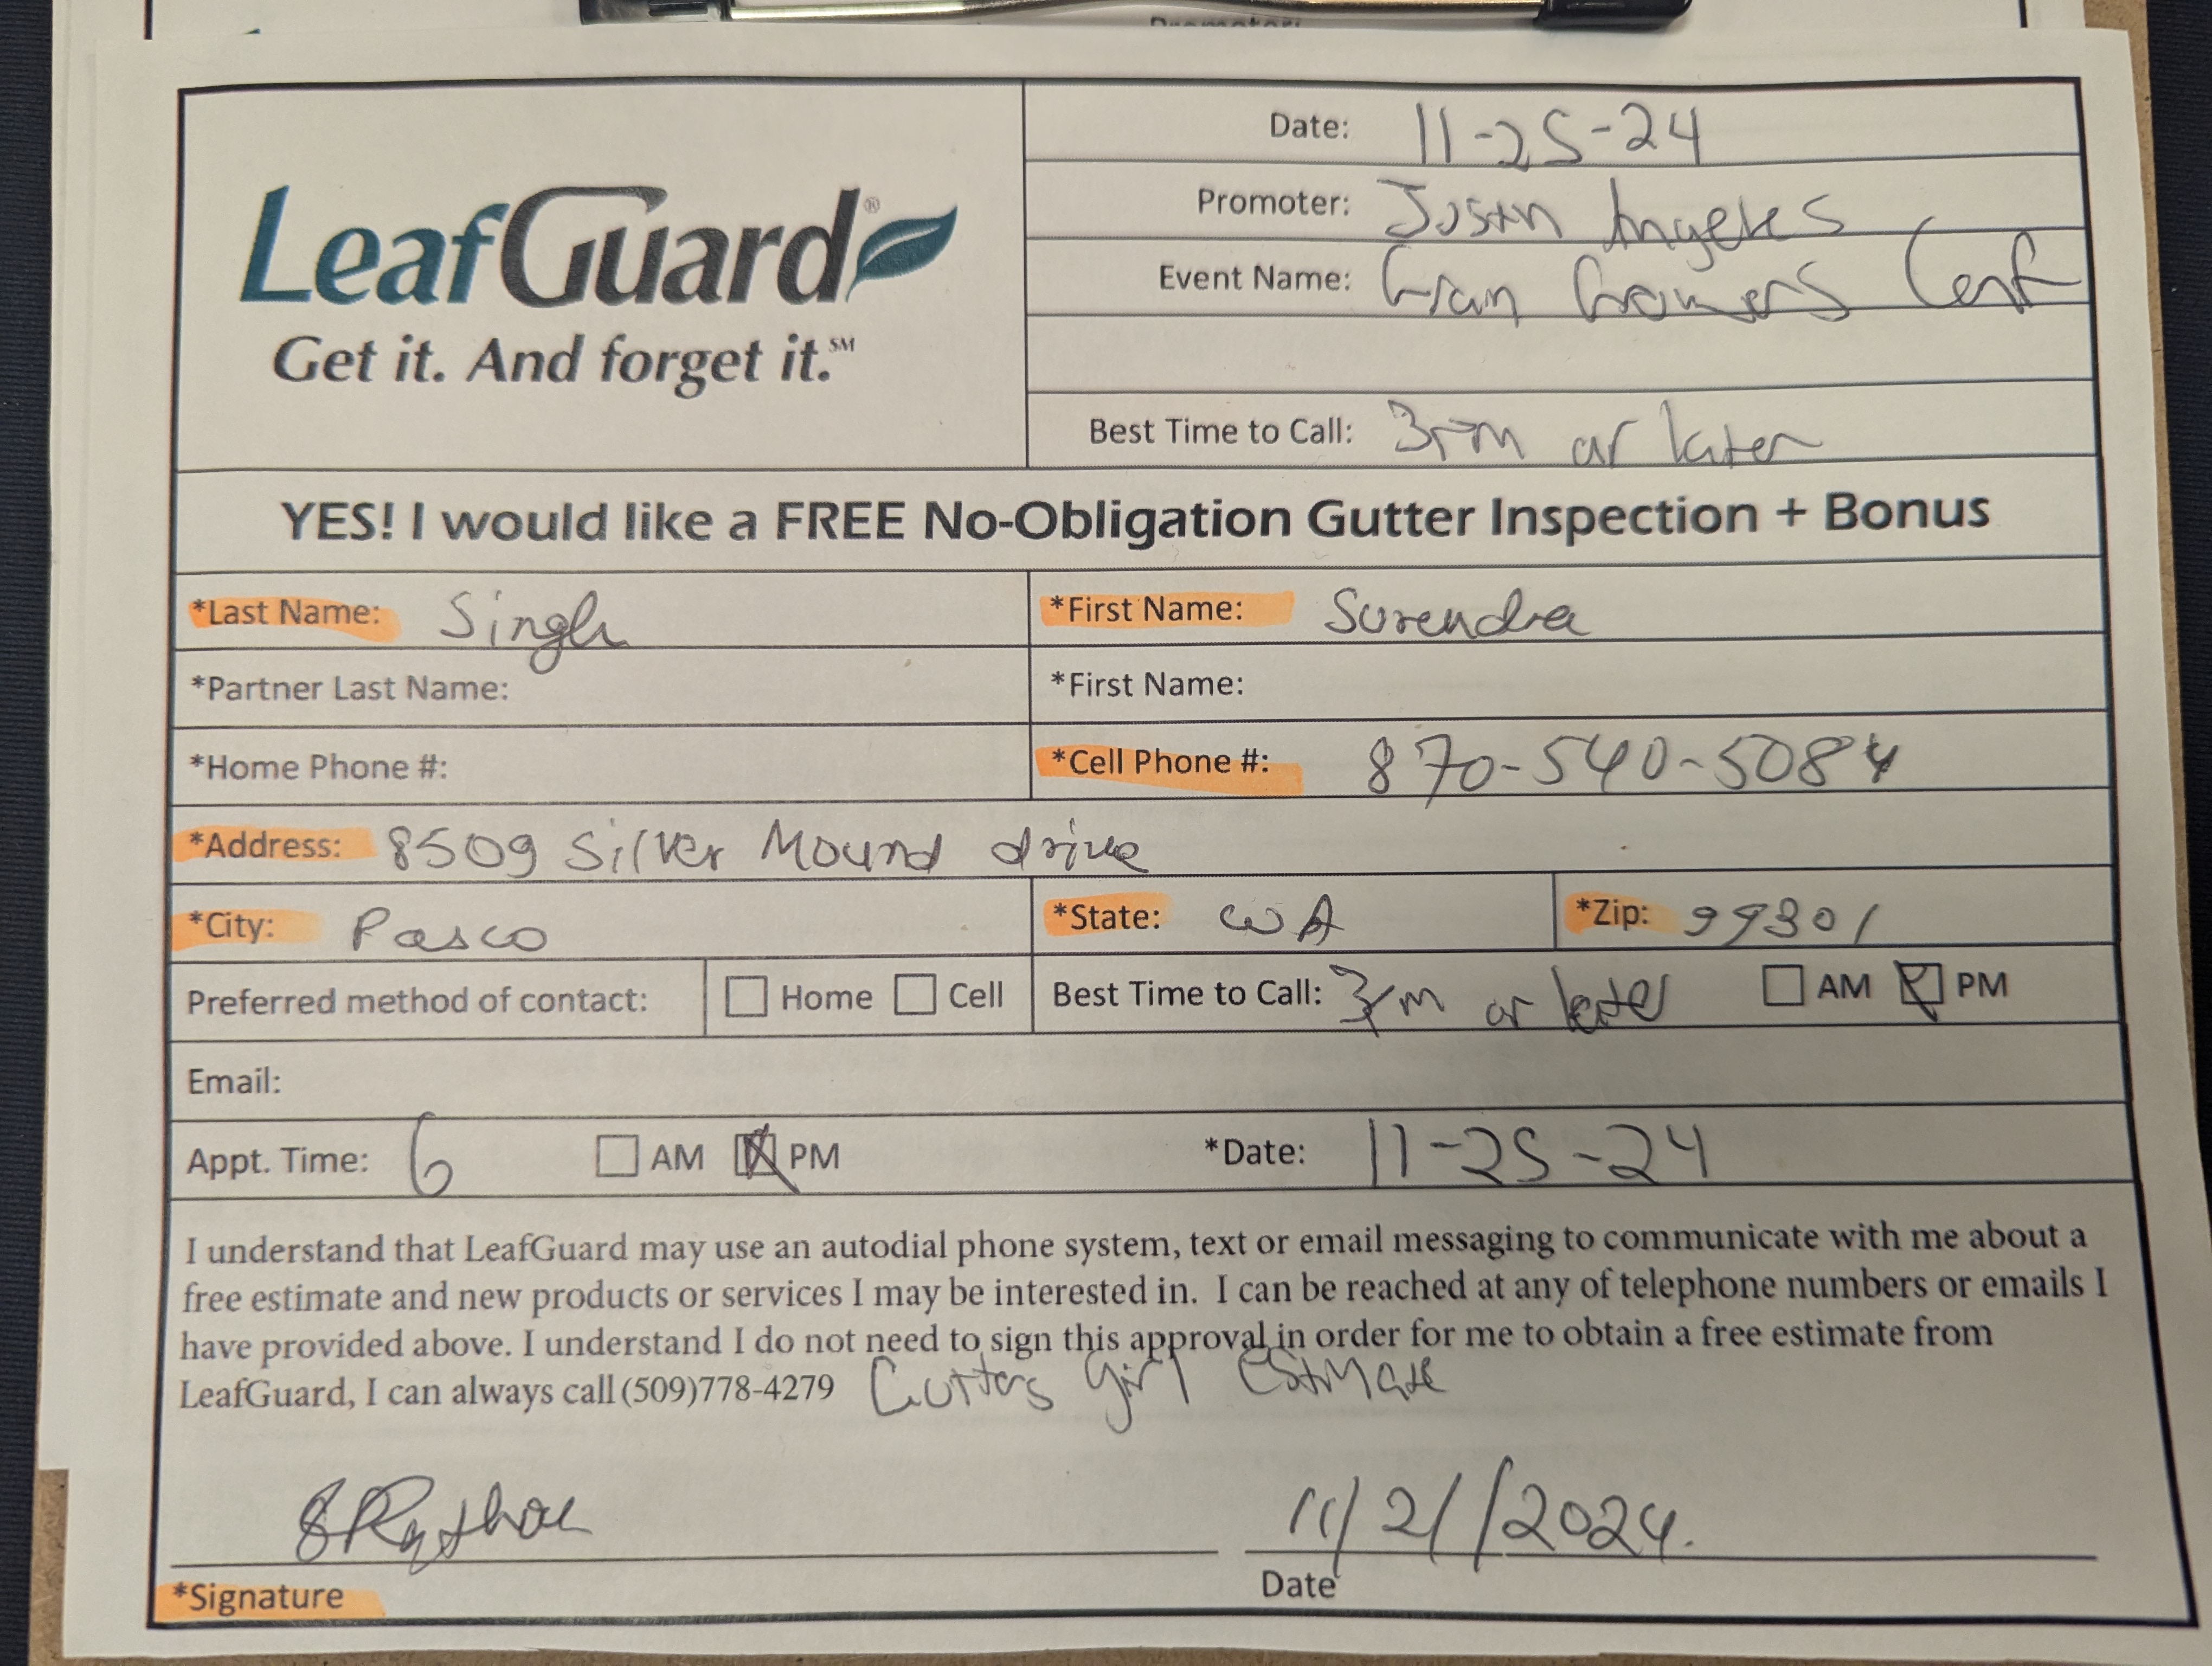 Date: 11-25-24
LeafGuard®
Get it. And forget it.℠
Promoter: Justin Angeles
Event Name: Grain Growers Conf
Best Time to Call: 3pm or later
YES! I would like a FREE No-Obligation Gutter Inspection + Bonus
*Last Name: Singh *First Name: Surendra
*Partner Last Name: *First Name:
*Home Phone #: *Cell Phone #: 870-540-5084
*Address: 8509 Silver Mound drive
*City: Pasco *State: WA *Zip: 99301
Preferred method of contact: Home Cell Best Time to Call: 3pm or later AM PM
Email:
Appt. Time: 6 AM PM *Date: 11-25-24
I understand that LeafGuard may use an autodial phone system, text or email messaging to communicate with me about a
free estimate and new products or services I may be interested in. I can be reached at any of telephone numbers or emails I
have provided above. I understand I do not need to sign this approval in order for me to obtain a free estimate from
LeafGuard, I can always call (509)778-4279 Gutters girl Estimate
11/21/2024.
*Signature Date